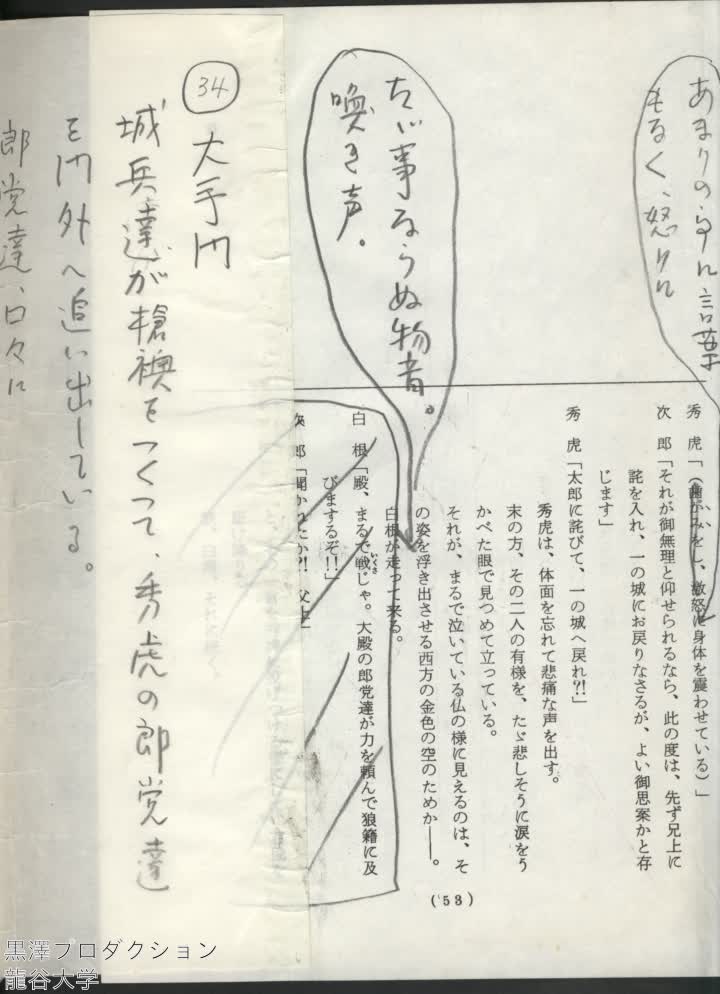 あまりの事に言葉
もなく、怒りに
たゞ事ならぬ物音。
喚き声。
秀　虎「（歯がみをし、激怒に身体を震わせている）」
次　郎「それが御無理と仰せられるなら、此の度は、先ず兄上に
詫を入れ、一の城にお戻りなさるが、よい御思案かと存
じます」
秀　虎「太郎に詫びて、一の城へ戻れ?!」
秀虎は、体面を忘れて悲痛な声を出す。
末の方、その二人の有様を、たゞ悲しそうに涙をう
かべた眼で見つめて立っている。
それが、まるで泣いている仏の様に見えるのは、そ
の姿を浮き出させる西方の金色の空のためか――。
白根が走って来る。
白　根「殿、まるで戦じゃ。大殿の郎党達が力を頼んで狼籍に及
いくさ
びまするぞ!!」
次　郎「聞かれたか?!　父上」
(53)
34
大手門
城兵達が槍襖をつくって、秀虎の郎党達
を門外へ追い出している。
郎党達、口々に
黒澤プロダクション
龍谷大学